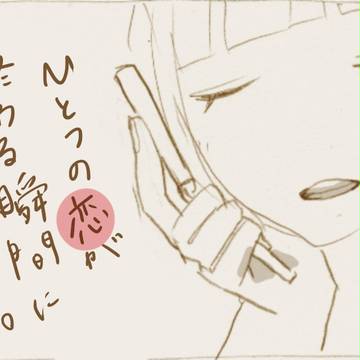 ひとつの恋が
たわる瞬間に。